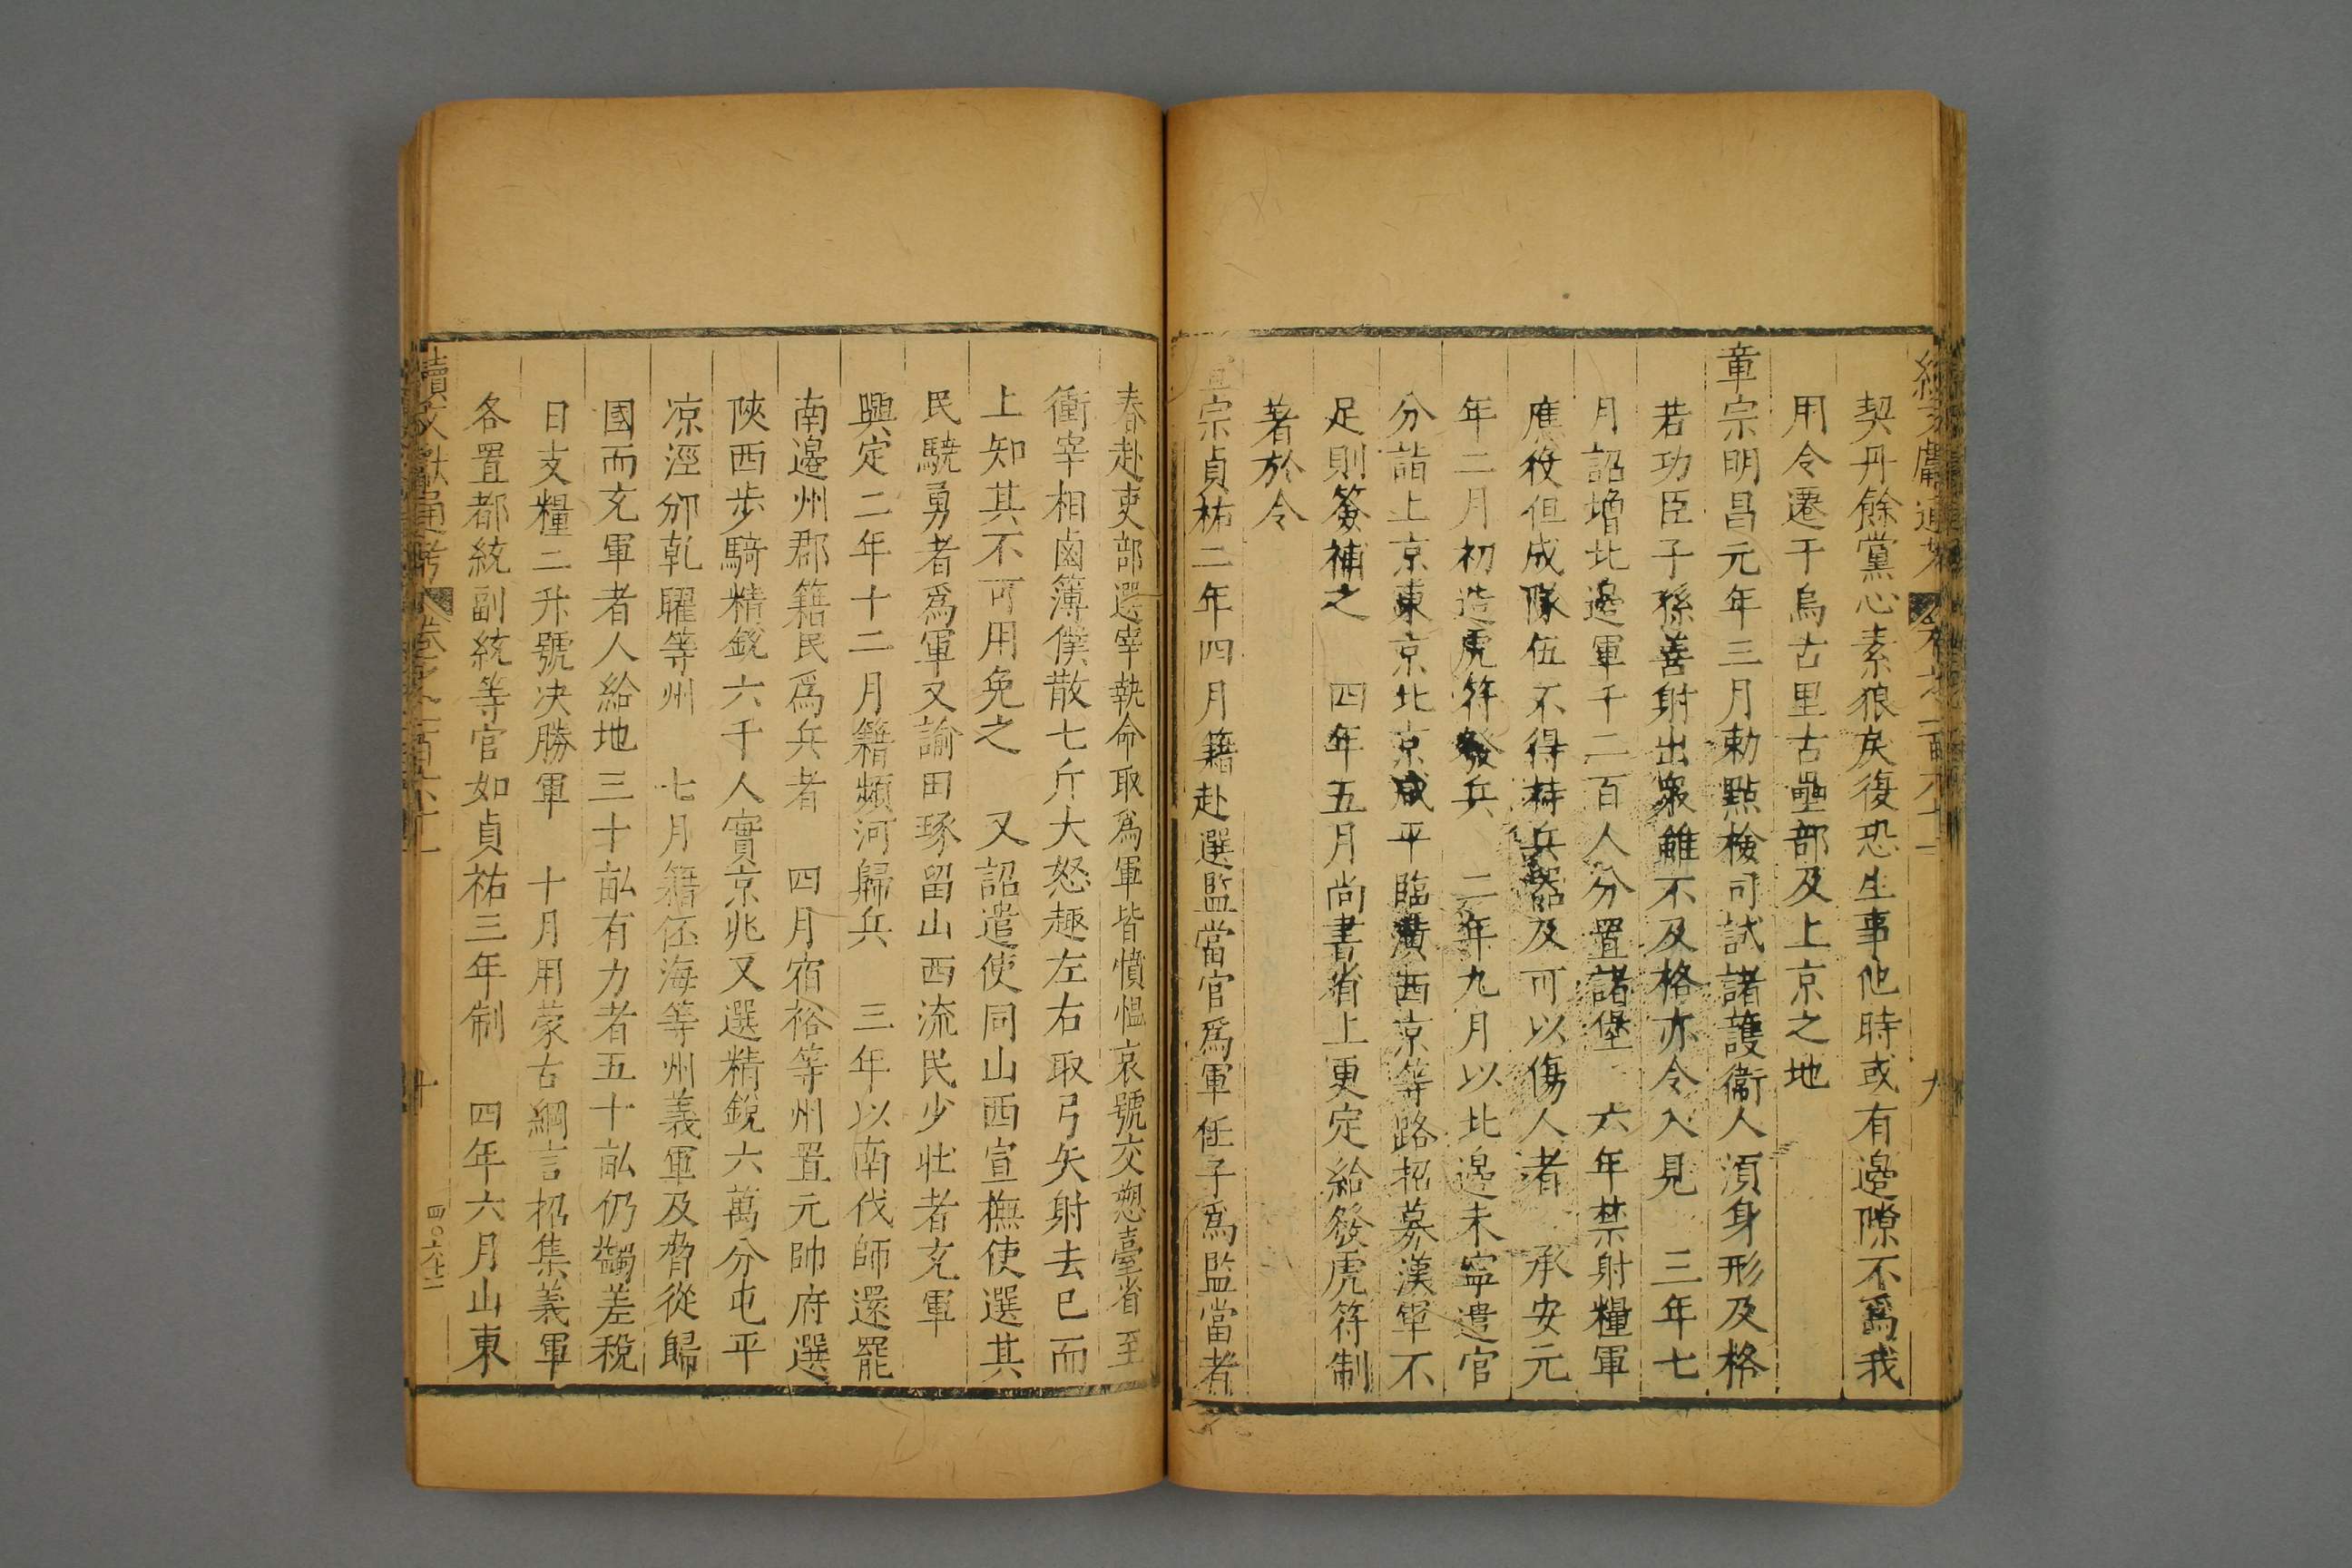 續文獻通考 卷之一百六十一 九
契丹餘黨心素狼戾復恐生事他時或有邊隙不爲我
用令遷于烏古里古壘部及上京之地
章宗明昌元年三月勅點檢司試諸護衞人須身形及格
若功臣子孫善射出衆雖不及格亦令入見 三年七
月詔增北邊軍千二百人分置諸堡 六年禁射糧軍
應役但成隊伍不得持兵器及可以傷人者 承安元
年二月初造虎符發兵 二年九月以北邊未寧遣官
分詣上京東京北京咸平臨潢西京等路招募漢軍不
足則簽補之 四年五月尚書省上更定給發虎符制
著於令
宣宗貞祐二年四月籍赴選監當官爲軍任子爲監當者
春赴吏部選宰執命取爲軍皆憤慍哀號交愬臺省至
衝宰相鹵簿僕散七斤大怒趣左右取弓矢射去已而
上知其不可用免之 又詔遣使同山西宣撫使選其
民驍勇者爲軍又諭田琢留山西流民少壯者充軍
興定二年十二月籍瀕河歸兵 三年以南伐師還罷
南邊州郡籍民爲兵者 四月宿裕等州置元帥府選
陝西步騎精銳六千人實京兆又選精銳六萬分屯平
凉涇邠乾耀等州 七月籍邳海等州義軍及脅從歸
國而充軍者人給地三十畝有力者五十畝仍蠲差稅
日支糧二升號決勝軍 十月用蒙古綱言招集義軍
各置都統副統等官如貞祐三年制 四年六月山東
續文獻通考 卷之一百六十一 十
四〇六十二